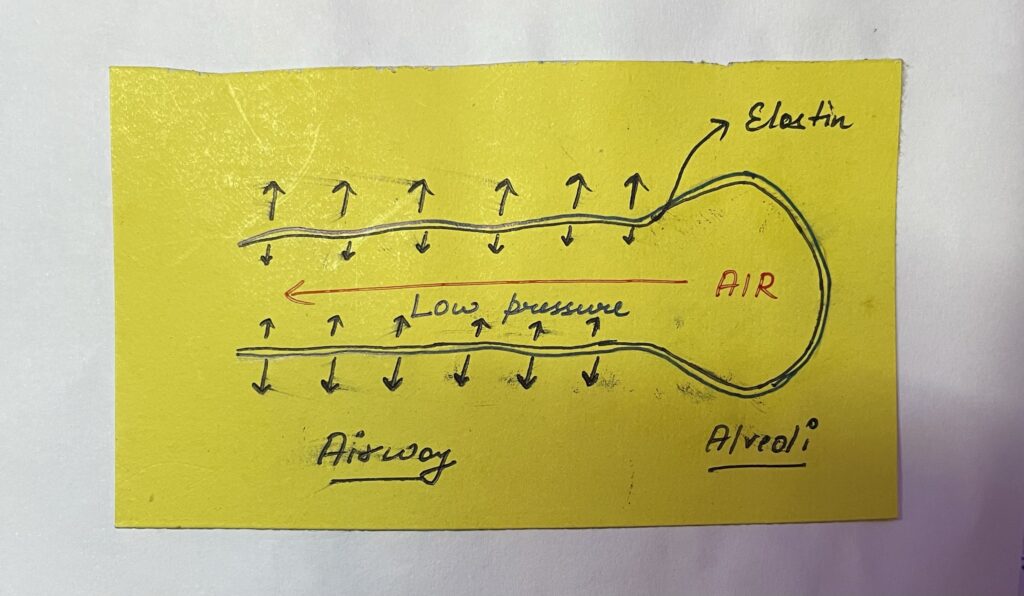 Elastin
AIR
Low pressure
Airway
Alveoli